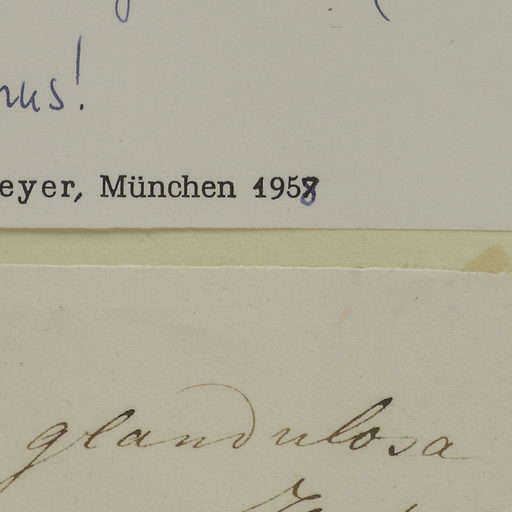 eyer, München 1958
glandulosa